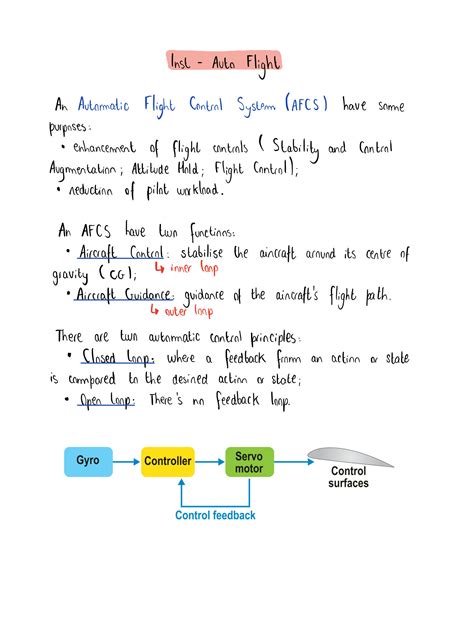 Inst - Auto Flight
An Automatic Flight Control System (AFCS) have some
purposes:
• enhancement of flight controls (Stability and Control
Augmentation; Attitude Hold; Flight Control);
• reduction of pilot workload.
An AFCS have two functions:
• Aircraft Control: stabilise the aircraft around its centre of
gravity (CG);
↳ inner loop
• Aircraft Guidance: guidance of the aircraft's flight path.
↳ outer loop
There are two automatic control principles:
• Closed loop: where a feedback from an action or state
is compared to the desired action or state;
• Open loop: There's no feedback loop.
Gyro
Controller
Servo
motor
Control
surfaces
Control feedback